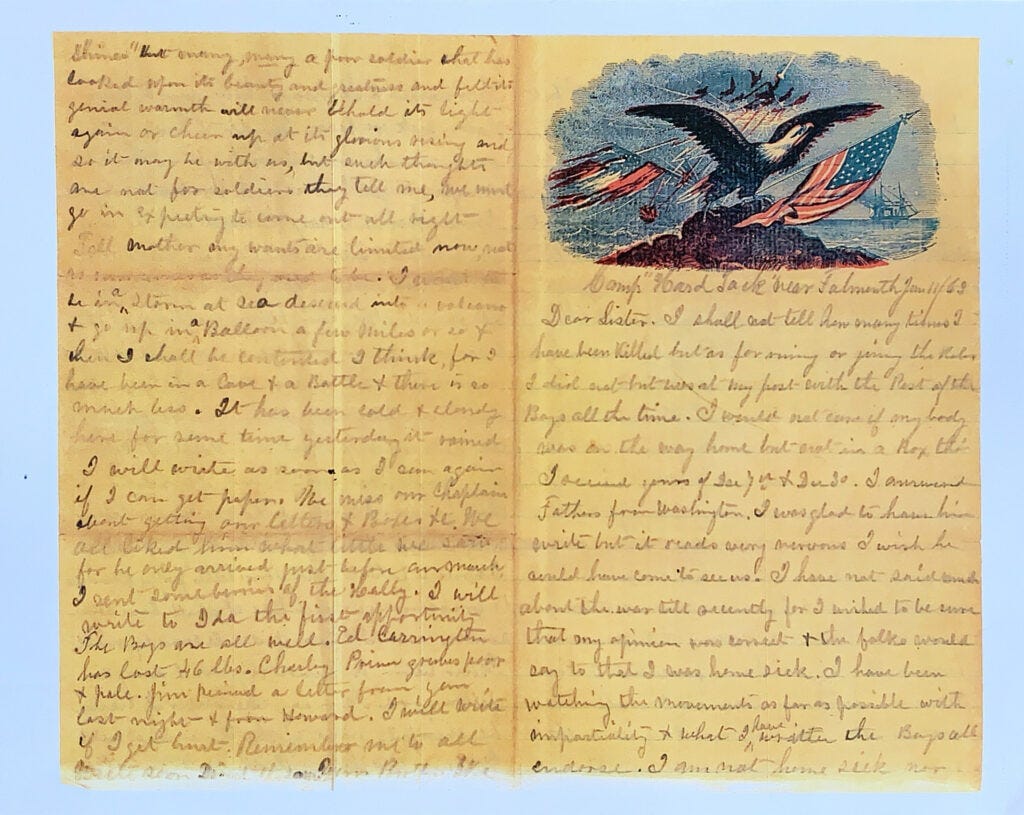 shines" but many, many a poor soldier that has
looked upon its beauty and greatness and felt its
genial warmth will never behold its light
again or cheer up at its glorious rising and
so it may be with us, but such thoughts
are not for soldiers they tell me, we must
go in expecting to come out all right
Tell mother my wants are limited now, not
as numerous as they used to be. I want to
be in a Storm at Sea descend into a volcano
& go up in a Balloon a few miles or so &
then I shall be contented I think, for I
have been in a Cave & a Battle & there is so
much less. It has been cold & cloudy
here for some time yesterday it rained
I will write as soon as I can again
if I can get paper. We miss our Chaplain
about getting our letters & Boxes &c. We
all liked him what little we saw
for he only arrived just before our march
I sent some berries of the Holly. I will
write to Ida the first opportunity
The Boys are all well. Ed Carrington
has lost 46 lbs. Charley grows poor
& pale. Jim received a letter from you
last night & from Howard. I will write
if I get hurt. Remember me to all
Write soon
Camp "Hard Tack" Near Falmouth Jan 11/63
Dear Sister. I shall not tell how many times I
have been killed but as for runing or joing the Rebs
I did not but was at my post with the Rest of the
Boys all the time. I would not care if my body
was on the way home but not in a Box tho
I received yours of Dec 7th & Dec 30. I answered
Fathers from Washington. I was glad to have him
write but it reads very nervous I wish he
could have come to see us. I have not said much
about the war till recently for I wished to be sure
that my opinion was correct & the folks would
say to that I was home sick. I have been
watching the movements as far as possible with
impartiality & what I have written the Boys all
endorse. I am not home sick nor